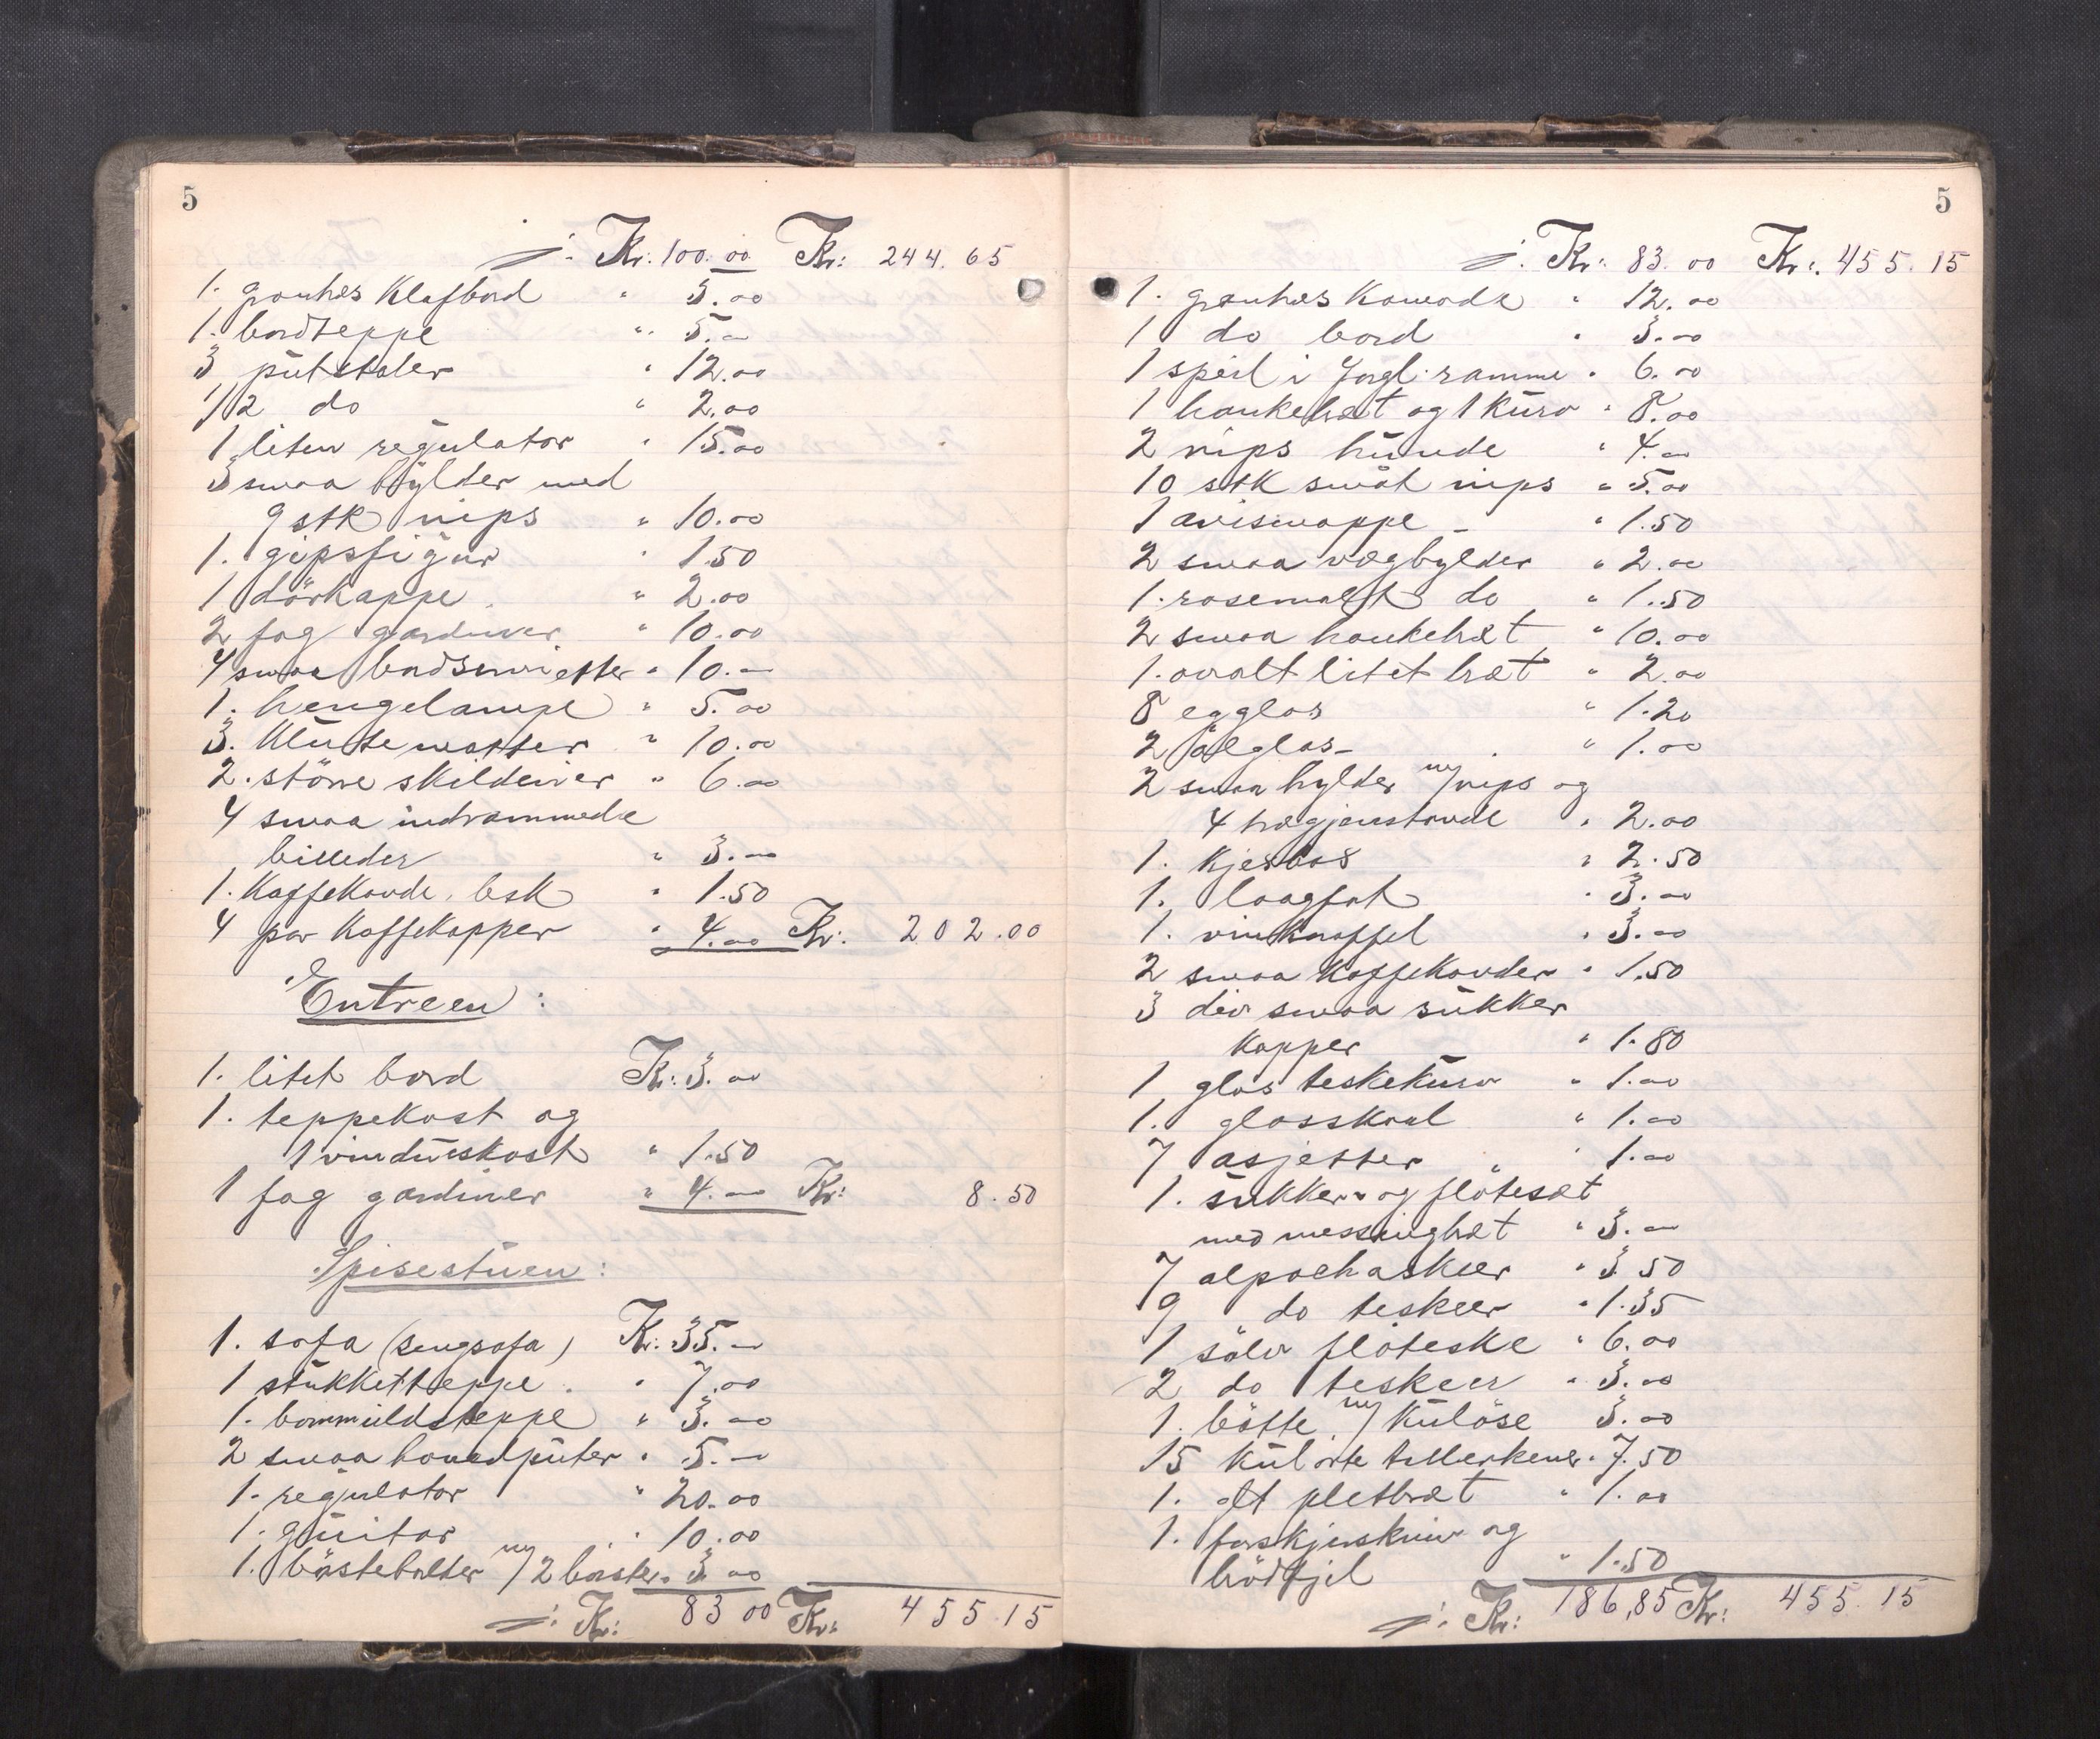 5
Kr. 100.00 Kr: 244.65
1. granhvs Klafbord " 5.00
1. bordteppe " 5.-
3 putstoler " 12.00
1/2 do " 2.00
1 liten regulator " 15.00
3 smaa hylder med
9 stk nips " 10.00
1. gipsfigur " 1.50
1 dörkappe " 2.00
2 fag gardiner " 10.00
4 smaa bordservietter " 10.-
1. hengelampe " 5.00
3. klutematter " 10.00
2. större skilderier " 6.00
4 smaa indrammede
billeder " 3.-
1. Kaffekande. besk " 1.50
4 par Kaffekopper " 4.00 Kr. 202.00
Entreen:
1. litet bord Kr: 3.00
1. teppekost og
1 vinduskost " 1.50
1 fag gardiner " 4.- Kr: 8.50
Spisestuen:
1. sofa (sengsofa) Kr: 35.-
1 stukketteppe " 7.00
1. bommuldsteppe " 3.00
2 smaa hovedputer " 5.-
1. regulator " 20.00
1. guitar " 10.00
1. börsteholter m/ 2 börster " 3.00
Kr: 83 00 Kr: 455.15
5
Kr: 83.00 Kr: 455.15
1. granhvs Komode " 12.00
1 do bord " 3.00
1 speil i forgl. ramme " 6.00
1 hankebret og 1 Kurv " 8.00
2 nips hunde " 4.-
10 stk smaat nips " 5.00
1 avismappe - " 1.50
2 smaa væghylder " 2.00
1. rosemalt do " 1.50
2 smaa hankebret " 10.00
1. ovalt litet bret " 2.00
8 egglas " 1.20
2 ölglas - " 1.00
2 smaa hylder m/ nips og
4 trægjenstande " 2.00
1. Kjexbox " 2.50
1. laagfat " 3.00
1. vinkaraffel " 3.00
2 smaa Kaffekander " 1.50
3 div smaa sukker
Kopper " 1.80
1 glas teskekurv " 1.00
1. glasskaal " 1.00
7 asjetter " 1.00
1. sukker og flötesæt
med messingbret " 3.-
7 alpachaskeer " 3 50
9 do teskeer " 1.35
1 sölv flöteske " 6.00
2 do teskeer " 3.00
1. bötte m/ Kulöse 3.00
15 Kulörte tallerkener " 7.50
1. glt pletbret " 1.00
1. forskjerskniv og
brödfjel " 1.50
Kr: 186,85 Kr: 455.15